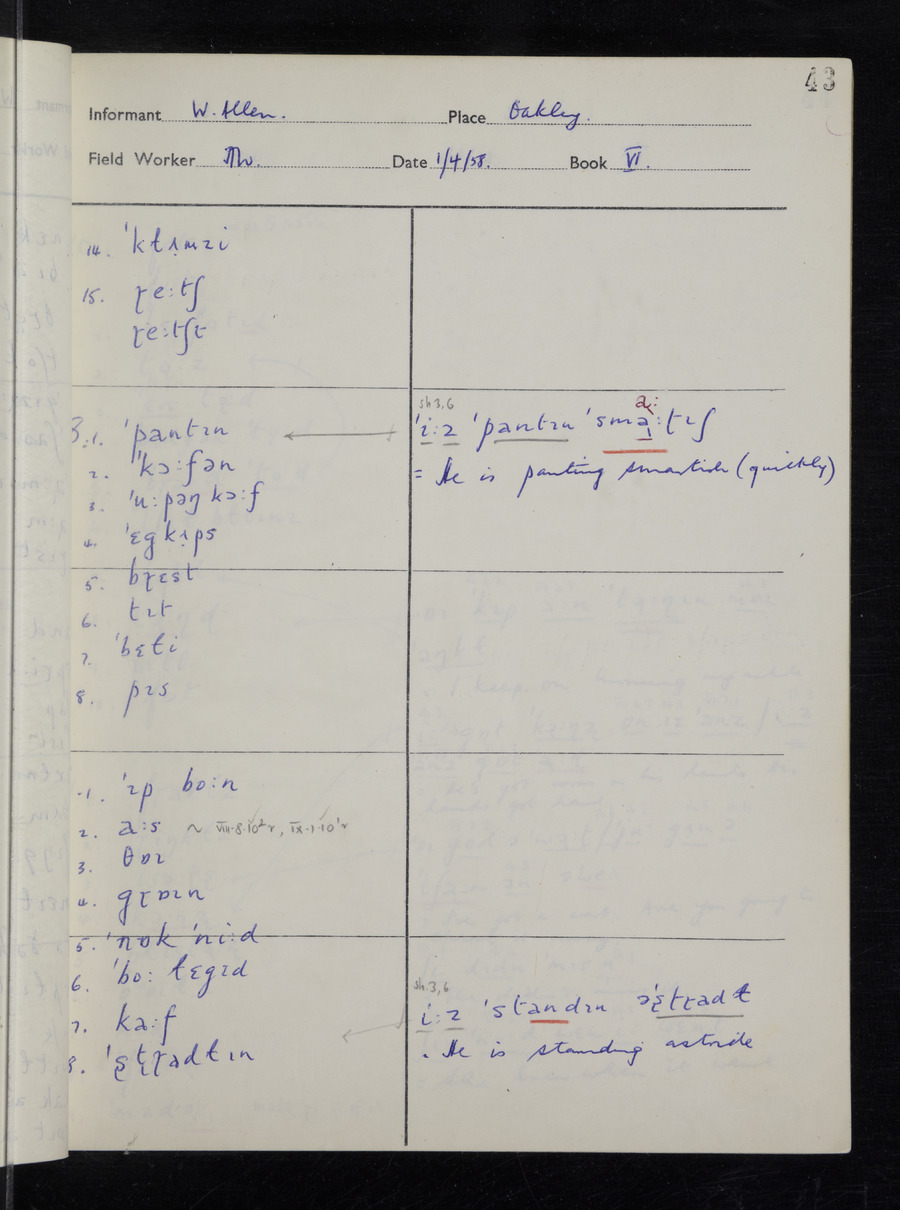 43
Informant W. Allen. Place Oakley.
Field Worker Date 1/4/58. Book VI.
14.
15. ɽe:tʃ
ɽe:tʃt
sh 3,6
3.1. ˈpantɪn
= He is panting smartish (quickly)
2. ˈkɔ:fən
3. ˈu:pəŋ kɔ:f
4. ˈɛgkɪps
5. bɽɛst
6. tɪt
7. ˈbɛti
8. pɪs
1. ˈɪp bo:n
2. a:s ~ VIII·8·10²r, IX·1·10¹r
3. θɒɪ
4. gɽɒɪn
5. ˈnɒk ˈni:d
6. ˈbo: lɛgɪd
sh.3,6
7. ka:f
8.
= He is standing astride